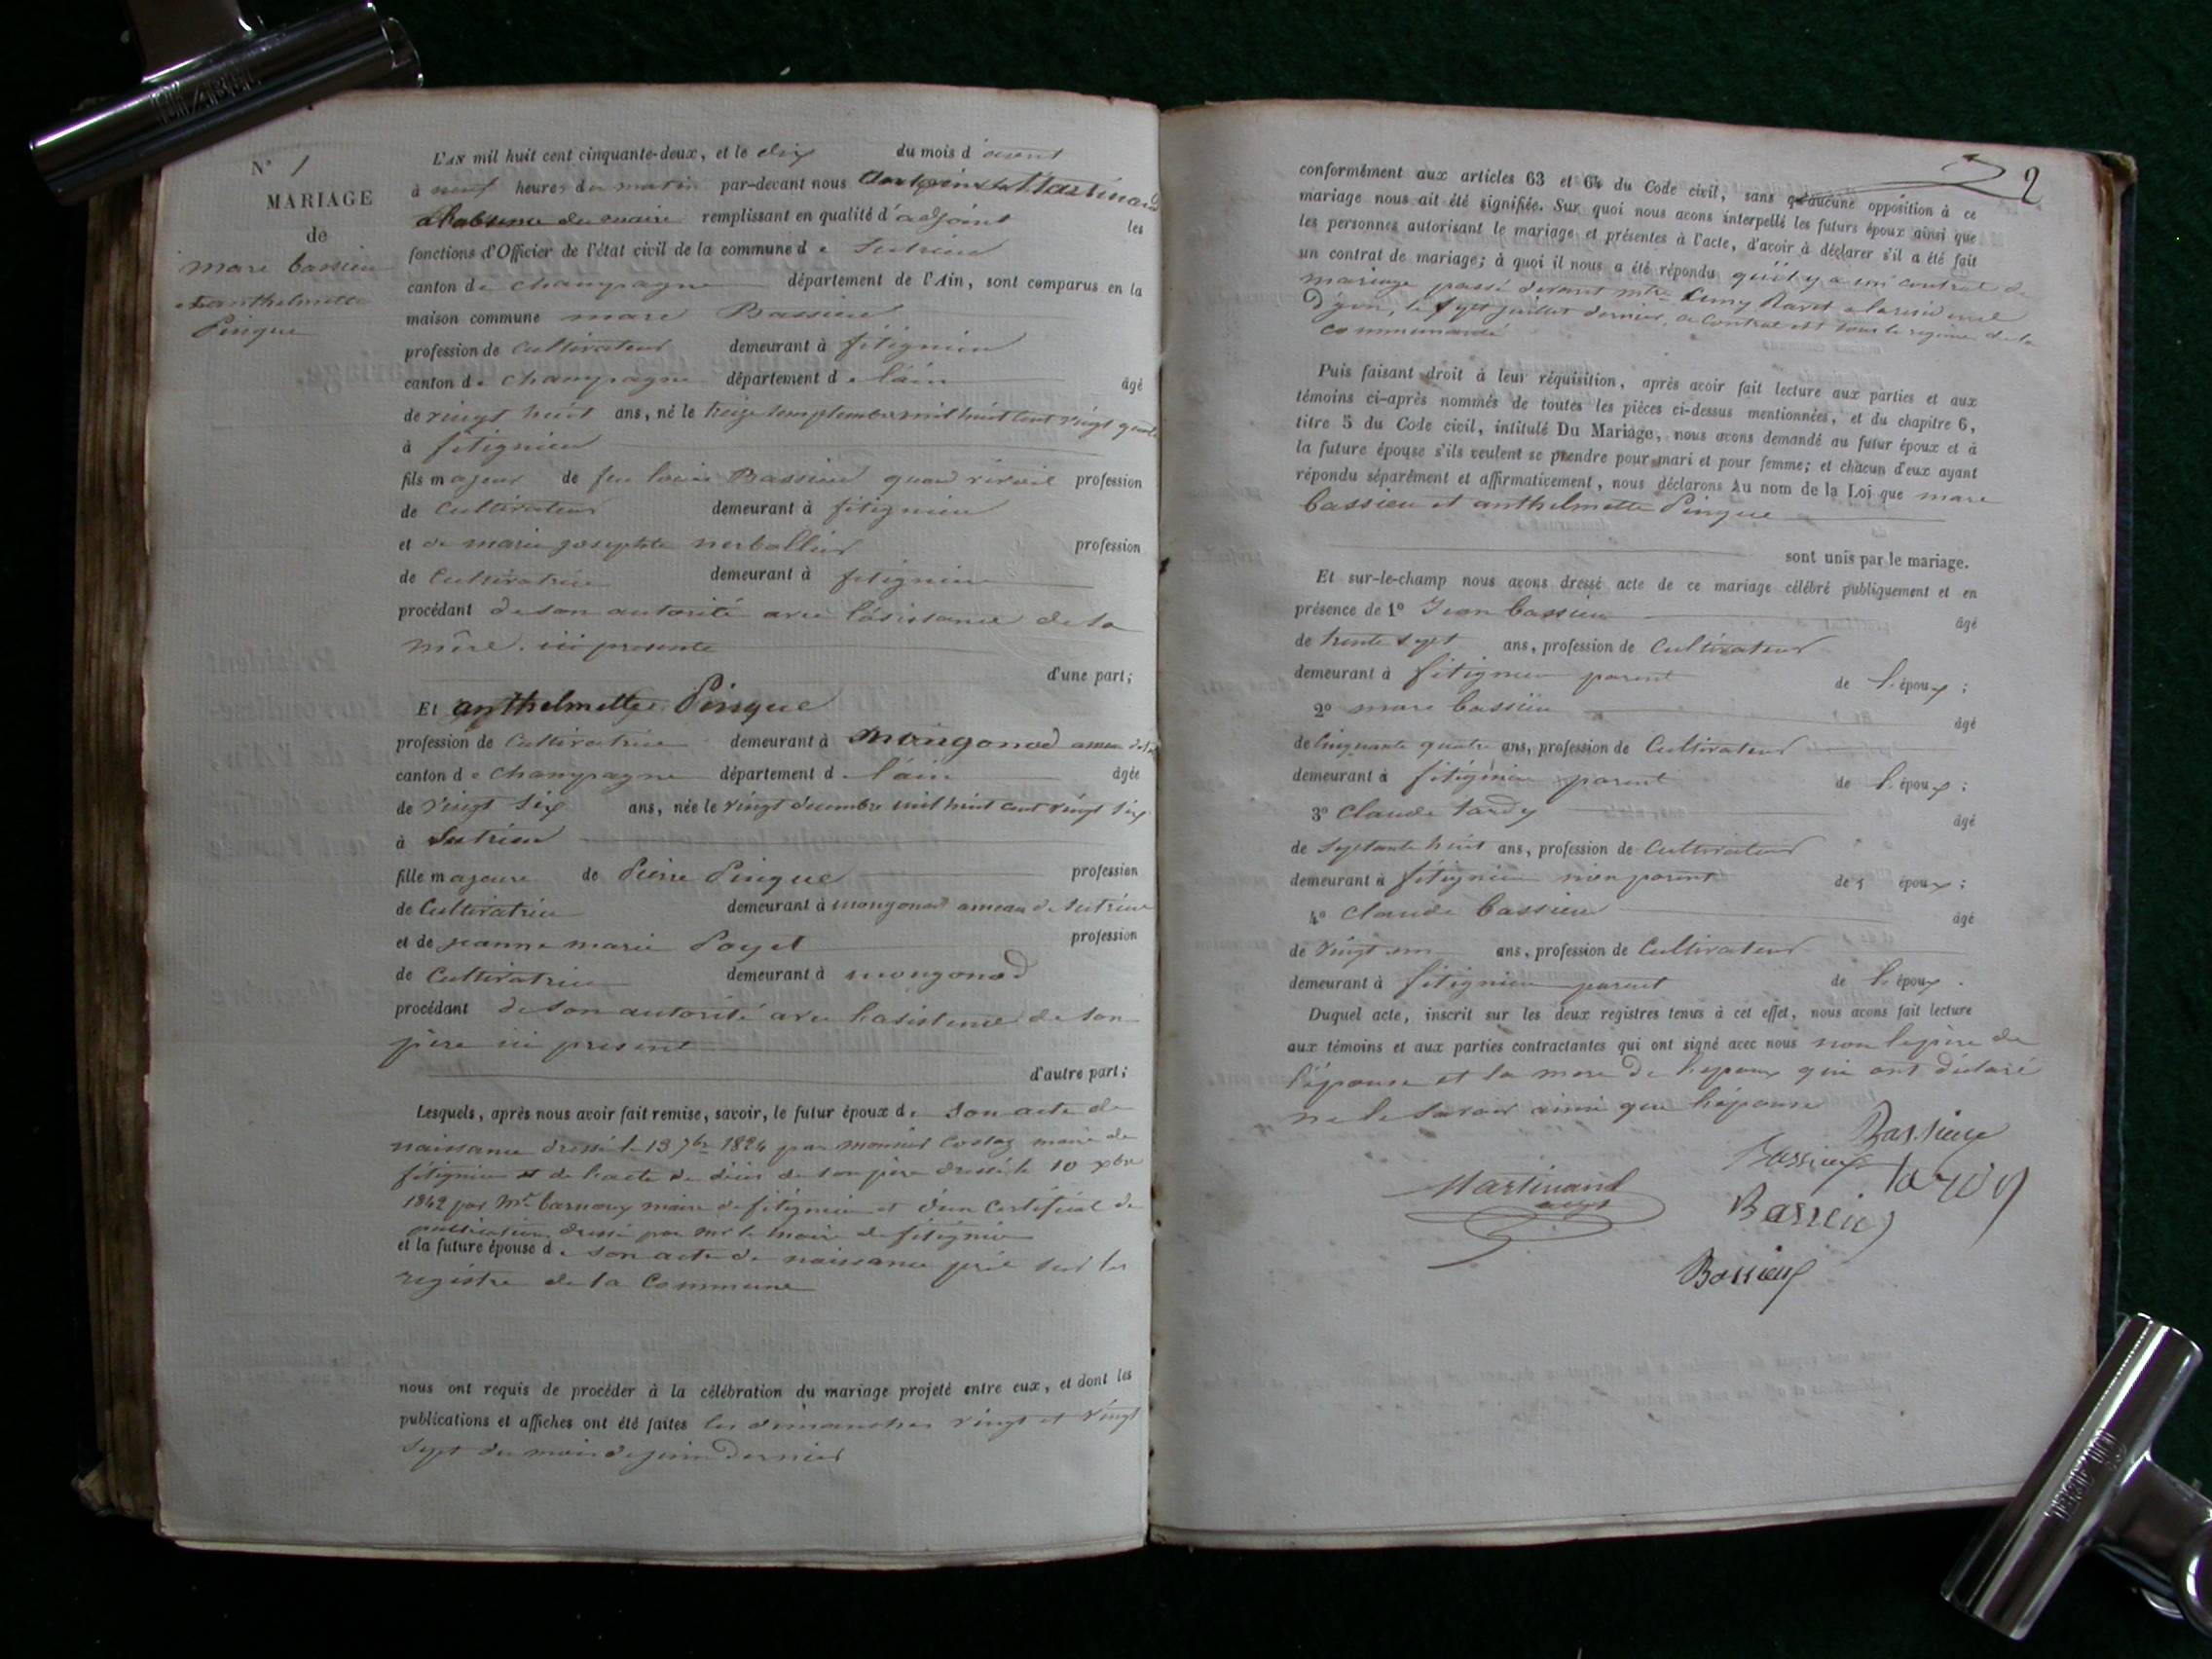 N° 1
MARIAGE
de
marc bassieu
et anthelmette
Pingue
L'AN mil huit cent cinquante-deux, et le dix du mois d'aoust
à neuf heures du matin par-devant nous Martinand
a l'absence du maire remplissant en qualité d'adjoint les
fonctions d'Officier de l'état civil de la commune de Sutrieu
canton de champagne département de l'Ain, sont comparus en la
maison commune marc Bassieu
profession de cultivateur demeurant à fitignieu
canton de champagne département de l'ain âgé
de vingt huit ans, né le treize semptembre mil huit cent vingt quatre
à fitignieu
fils majeur de feu louis Bassieu quand vivoit profession
de cultivateur demeurant à fitignieu
et de marie josephte nerbollier profession
de cultivatrice demeurant à fitignieu
procédant de son autorité avec l'asistance de sa
mère ici presente
d'une part;
Et anthelmette Pingue
profession de cultivatrice demeurant à mongonod
canton de champagne département de l'ain âgée
de vingt six ans, née le vingt decembre mil huit cent vingt six
à Sutrieu
fille majeure de Pierre Pingue profession
de Cultivatrice demeurant à mongonod ameau de Sutrieu
et de jeanne marie Poyet profession
de cultivatrice demeurant à mongonod
procédant de son autorité avec l'asistence de son
père ici present
d'autre part;
Lesquels, après nous avoir fait remise, savoir, le futur époux de son acte de
naissance dressé le 13 7bre 1824 par monsieur Costaz maire de
fitignieu et de l'acte de décès de son père dressé le 10 xbre
1842 par Mr maire de fitignieu et d'un certificat de
publication dressé par mr le maire de fitignieu
et la future épouse de son acte de naissance prié sur les
registre de la Commune
nous ont requis de procéder à la célébration du mariage projeté entre eux, et dont les
publications et affiches ont été faites les dimanches vingt et vingt
sept du mois de juin dernier
2
conformément aux articles 63 et 64 du Code civil, sans qu'aucune opposition à ce
mariage nous ait été signifiée. Sur quoi nous avons interpellé les futurs époux ainsi que
les personnes autorisant le mariage et présentes à l'acte, d'avoir à déclarer s'il a été fait
un contrat de mariage; à quoi il nous a été répondu qu'il y a un contrat de
mariage passé devant mtre Ravet a la residence
le sept juillet dernier, ce contrat est sous le regime de la
communauté
Puis faisant droit à leur réquisition, après avoir fait lecture aux parties et aux
témoins ci-après nommés de toutes les pièces ci-dessus mentionnées, et du chapitre 6,
titre 5 du Code civil, intitulé Du Mariage, nous avons demandé au futur époux et à
la future épouse s'ils veulent se prendre pour mari et pour femme; et chacun d'eux ayant
répondu séparément et affirmativement, nous déclarons Au nom de la Loi que marc
bassieu et anthelmette Pingue
sont unis par le mariage.
Et sur-le-champ nous avons dressé acte de ce mariage célébré publiquement et en
présence de 1° Jean bassieu âgé
de trente sept ans, profession de Cultivateur
demeurant à fitignieu parent de l'époux;
2° marc bassieu âgé
de cinquante quatre ans, profession de Cultivateur
demeurant à fitignieu parent de l'époux;
3° Claude tardy âgé
de septante huit ans, profession de Cultivateur
demeurant à fitignieu non parent des époux;
4° Claude bassieu âgé
de vingt un ans, profession de Cultivateur
demeurant à fitignieu parent de l'époux.
Duquel acte, inscrit sur les deux registres tenus à cet effet, nous avons fait lecture
aux témoins et aux parties contractantes qui ont signé avec nous non le père de
l'épouse et la mere de l'epoux qui ont déclaré
ne le savoir ainsi que l'épouse
Bassieux
Bassieux tardy
Martinand
adjt
Bassieu
Bassieux